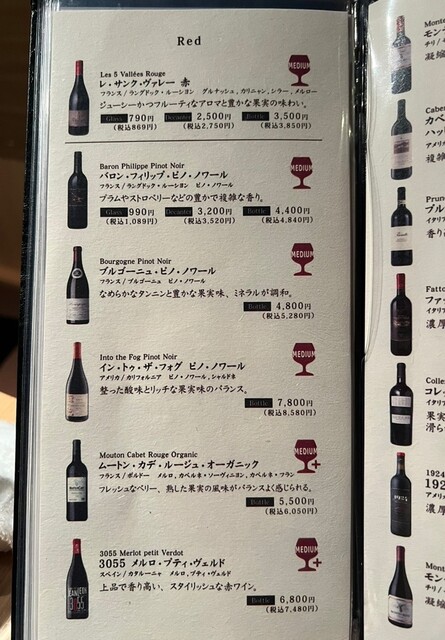 Red
Les 5 Vallées Rouge
レ・サンク・ヴァレー 赤
フランス/ラングドック・ルーシヨン グルナッシュ,カリニャン,シラー,メルロー
ジューシーかつフルーティなアロマと豊かな果実の味わい。
MEDIUM
Glass 790円 Decanter 2,500円 Bottle 3,500円
(税込869円) (税込2,750円) (税込3,850円)
Baron Philippe Pinot Noir
バロン・フィリップ・ピノ・ノワール
フランス/ラングドック・ルーション ピノ・ノワール
プラムやストロベリーなどの豊かで複雑な香り。
MEDIUM
Glass 990円 Decanter 3,200円 Bottle 4,400円
(税込1,089円) (税込3,520円) (税込4,840円)
Bourgogne Pinot Noir
ブルゴーニュ・ピノ・ノワール
フランス/ブルゴーニュ ピノ・ノワール
なめらかなタンニンと豊かな果実味、ミネラルが調和。
MEDIUM
Bottle 4,800円
(税込5,280円)
Into the Fog Pinot Noir
イン・トゥ・ザ・フォグ ピノ・ノワール
アメリカ/カリフォルニア ピノ・ノワール,シャルドネ
整った酸味とリッチな果実味のバランス。
MEDIUM
Bottle 7,800円
(税込8,580円)
Mouton Cabet Rouge Organic
ムートン・カデ・ルージュ・オーガニック
フランス/ボルドー メルロ,カベルネ・ソーヴィニヨン,カベルネ・フラン
フレッシュなベリー、熟した果実の風味がバランスよく感じられる。
MEDIUM+
Bottle 5,500円
(税込6,050円)
3055 Merlot petit Verdot
3055 メルロ・プティ・ヴェルド
スペイン/カタルーニャ メルロ,プティ・ヴェルド
上品で香り高い、スタイリッシュな赤ワイン。
MEDIUM+
Bottle 6,800円
(税込7,480円)
Monte
モン
チリ/
凝縮
Caber
カベ
ハッ
アメリ
複雑
Prun
ブル
イタリ
香り
Fatto
ファ
イタリ
濃厚
Colle
コレ
イタリ
果実
滑ら
1924
192
アメリ
濃厚
Mont
モン
チリ/
凝縮